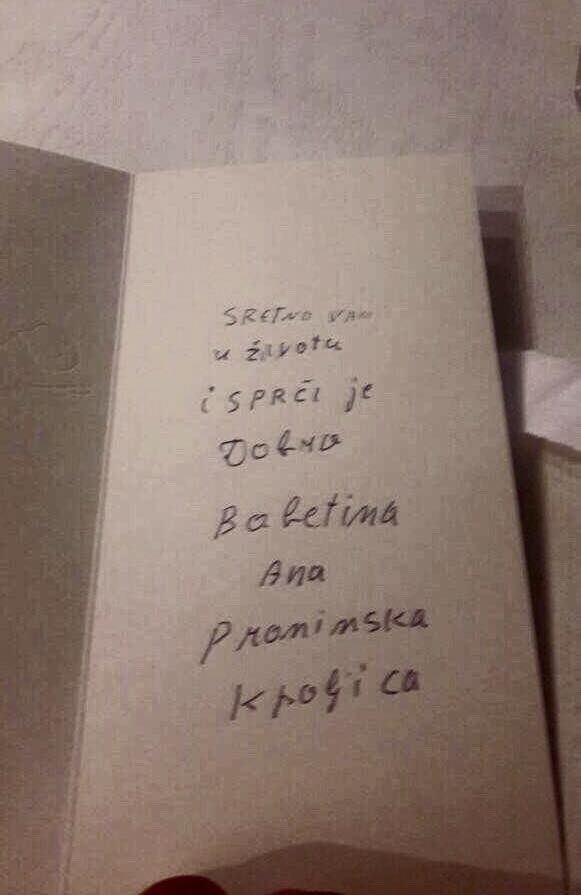 SRETNO VAM
u životu
i SPRČI je
Dobro
Babetina
Ana
Prominska
Kraljica